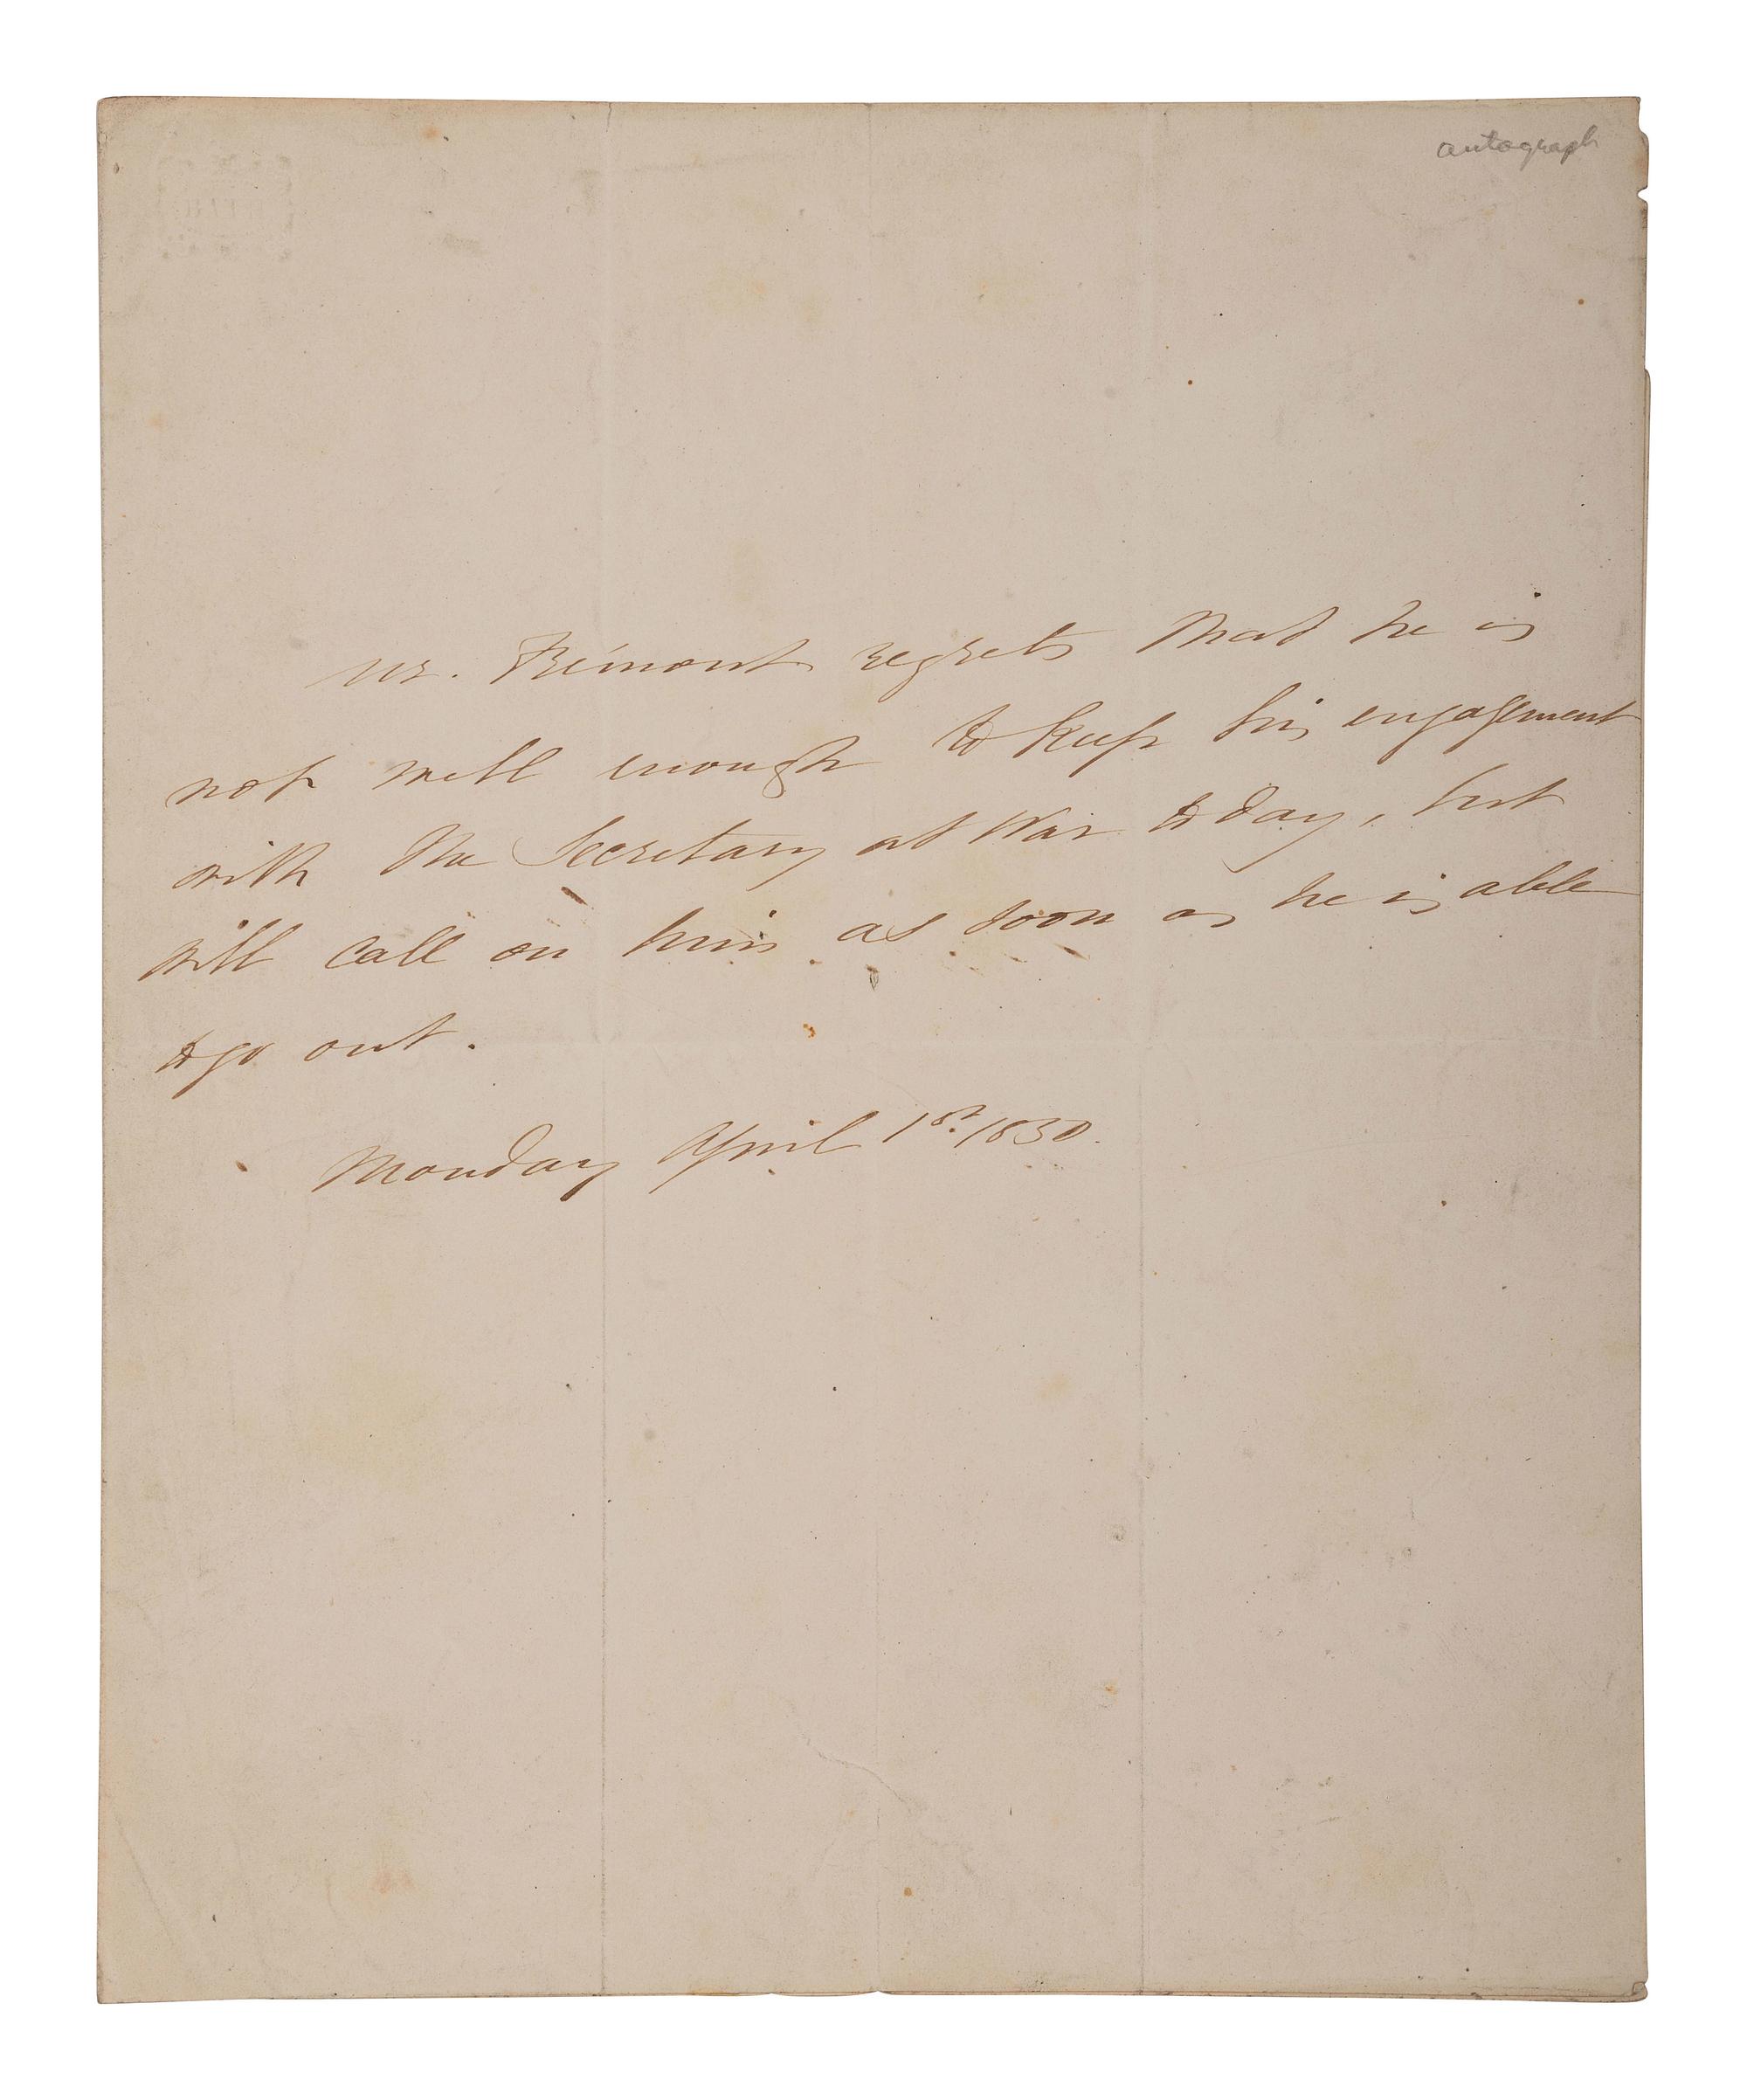 autograph
Mr. Frémont regrets that he is
not well enough to keep his engagement
with the Secretary at War to day, but
will call on him as soon as he is able
to go out.
Monday April 1st. 1850.